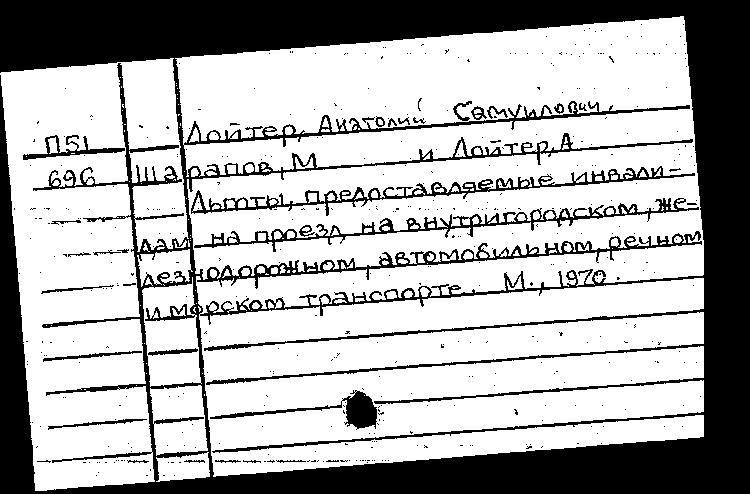 Лойтер, Анатолий Самуилович.
П51
696 Шарапов, М и Лойтер, А
Льготы, предоставляемые инвали-
дам на проезд на внутригородском, же-
лезнодорожном, автомобильном, речном
и морском транспорте. М., 1970.